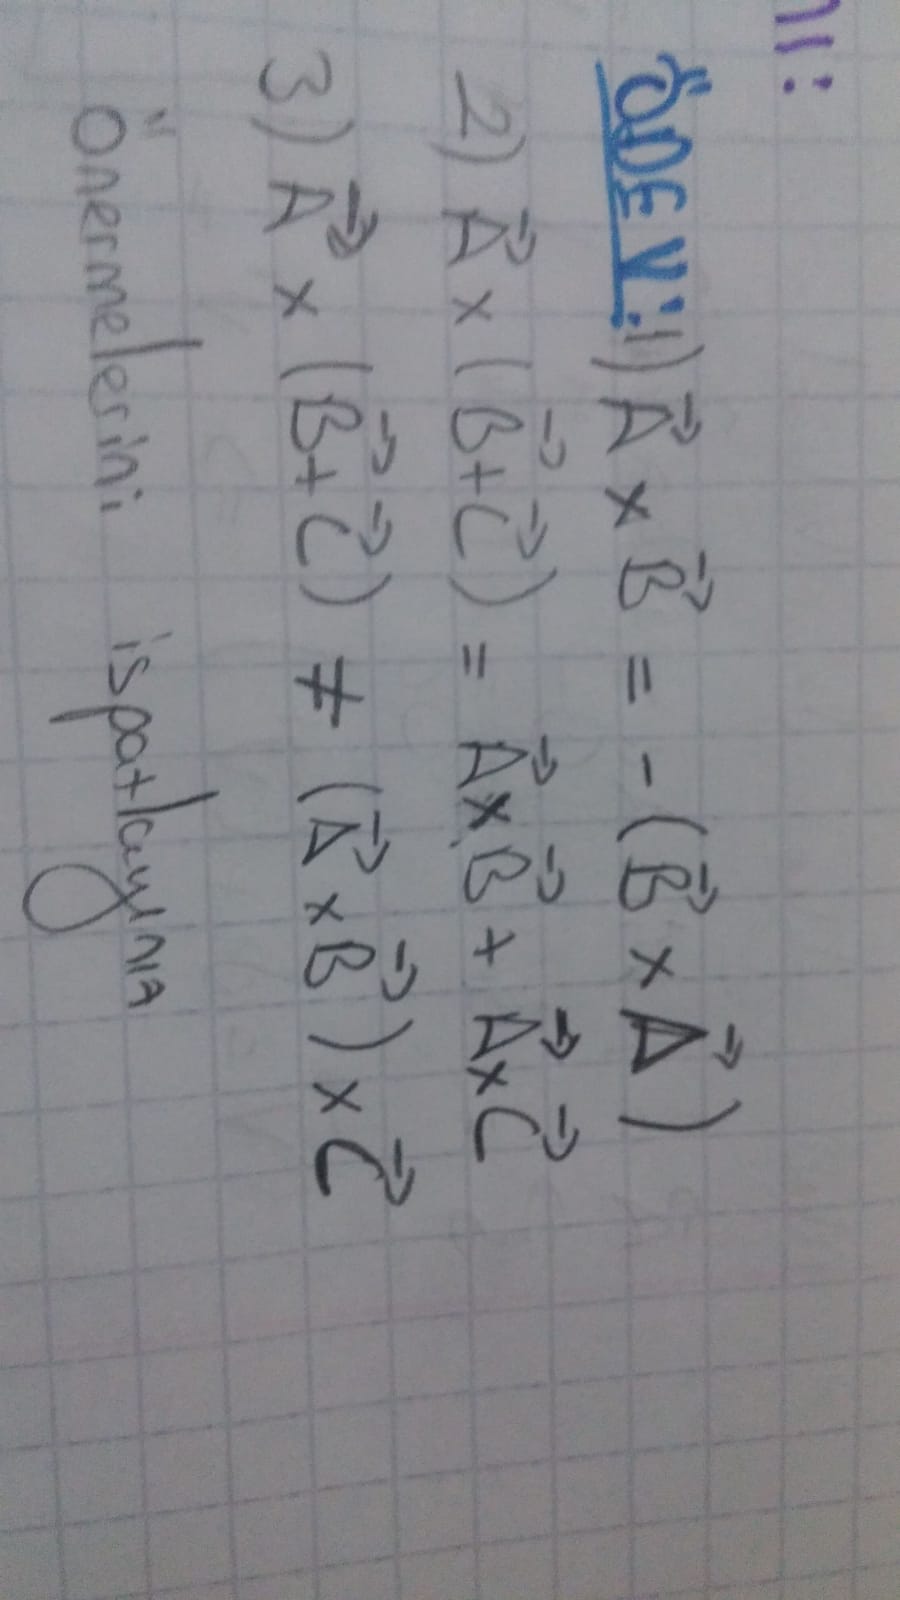 ÖDEV:1) A⃗ x B⃗ = - (B⃗ x A⃗)
2) A⃗ x (B⃗+C⃗) = A⃗xB⃗ + A⃗xC⃗
3) A⃗ x (B⃗+C⃗) ≠ (A⃗ x B⃗) x C⃗
Önermelerini ispatlayınız